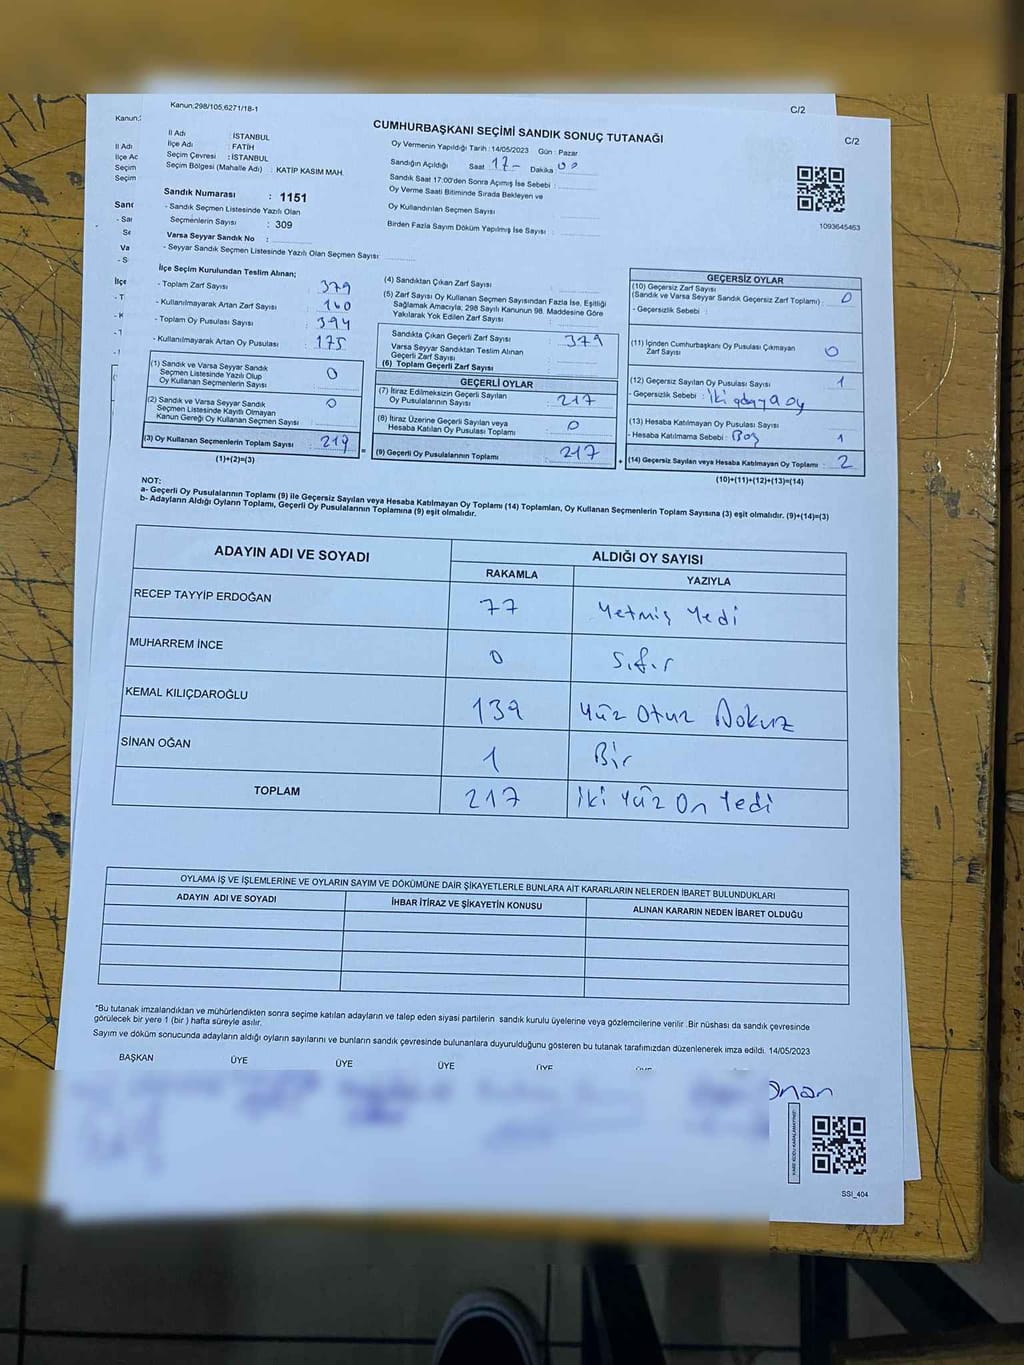 Kanun;298/105,6271/18-1
C/2
CUMHURBAŞKANI SEÇİMİ SANDIK SONUÇ TUTANAĞI
C/2
İl Adı : İSTANBUL
İlçe Adı : FATİH
Seçim Çevresi : İSTANBUL
Seçim Bölgesi (Mahalle Adı) : KATİP KASIM MAH.
Sandık Numarası : 1151
- Sandık Seçmen Listesinde Yazılı Olan
Seçmenlerin Sayısı : 309
Varsa Seyyar Sandık No :
- Seyyar Sandık Seçmen Listesinde Yazılı Olan Seçmen Sayısı:
Oy Vermenin Yapıldığı Tarih : 14/05/2023 Gün : Pazar
Sandığın Açıldığı Saat 17- Dakika 00
Sandık Saat 17:00'den Sonra Açımış İse Sebebi :
Oy Verme Saati Bitiminde Sırada Bekleyen ve
Oy Kullandırılan Seçmen Sayısı
Birden Fazla Sayım Döküm Yapılmış İse Sayısı :
1093645463
İlçe Seçim Kurulundan Teslim Alınan;
- Toplam Zarf Sayısı : 379
- Kullanılmayarak Artan Zarf Sayısı : 160
- Toplam Oy Pusulası Sayısı : 394
- Kullanılmayarak Artan Oy Pusulası : 175
(1) Sandık ve Varsa Seyyar Sandık
Seçmen Listesinde Yazılı Olup
Oy Kullanan Seçmenlerin Sayısı : 0
(2) Sandık ve Varsa Seyyar Sandık
Seçmen Listesinde Kayıtlı Olmayan
Kanun Gereği Oy Kullanan Seçmen Sayısı : 0
(3) Oy Kullanan Seçmenlerin Toplam Sayısı : 219
(1)+(2)=(3)
(4) Sandıktan Çıkan Zarf Sayısı :
(5) Zarf Sayısı Oy Kullanan Seçmen Sayısından Fazla İse, Eşitliği
Sağlamak Amacıyla; 298 Sayılı Kanunun 98. Maddesine Göre
Yakılarak Yok Edilen Zarf Sayısı :
Sandıkta Çıkan Geçerli Zarf Sayısı : 379
Varsa Seyyar Sandıktan Teslim Alınan
Geçerli Zarf Sayısı :
(6) Toplam Geçerli Zarf Sayısı :
GEÇERLİ OYLAR
(7) İtiraz Edilmeksizin Geçerli Sayılan
Oy Pusulalarının Sayısı : 217
(8) İtiraz Üzerine Geçerli Sayılan veya
Hesaba Katılan Oy Pusulası Toplamı : 0
(9) Geçerli Oy Pusulalarının Toplamı : 217
GEÇERSİZ OYLAR
(10) Geçersiz Zarf Sayısı
(Sandık ve Varsa Seyyar Sandık Geçersiz Zarf Toplamı) : 0
- Geçersizlik Sebebi :
(11) İçinden Cumhurbaşkanı Oy Pusulası Çıkmayan
Zarf Sayısı : 0
(12) Geçersiz Sayılan Oy Pusulası Sayısı : 1
- Geçersizlik Sebebi : iki adaya oy
(13) Hesaba Katılmayan Oy Pusulası Sayısı
- Hesaba Katılmama Sebebi : Boş 1
(14) Geçersiz Sayılan veya Hesaba Katılmayan Oy Toplamı : 2
(10)+(11)+(12)+(13)=(14)
NOT:
a- Geçerli Oy Pusulalarının Toplamı (9) ile Geçersiz Sayılan veya Hesaba Katılmayan Oy Toplamı (14) Toplamları, Oy Kullanan Seçmenlerin Toplam Sayısına (3) eşit olmalıdır. (9)+(14)=(3)
b- Adayların Aldığı Oyların Toplamı, Geçerli Oy Pusulalarının Toplamına (9) eşit olmalıdır.
ADAYIN ADI VE SOYADI ALDIĞI OY SAYISI
RAKAMLA YAZIYLA
RECEP TAYYİP ERDOĞAN 77 Yetmiş Yedi
MUHARREM İNCE 0 Sıfır
KEMAL KILIÇDAROĞLU 139 Yüz Otuz Dokuz
SİNAN OĞAN 1 Bir
TOPLAM 217 İki Yüz On Yedi
OYLAMA İŞ VE İŞLEMLERİNE VE OYLARIN SAYIM VE DÖKÜMÜNE DAİR ŞİKAYETLERLE BUNLARA AİT KARARLARIN NELERDEN İBARET BULUNDUKLARI
ADAYIN ADI VE SOYADI İHBAR İTİRAZ VE ŞİKAYETİN KONUSU ALINAN KARARIN NEDEN İBARET OLDUĞU
*Bu tutanak imzalandıktan ve mühürlendikten sonra seçime katılan adayların ve talep eden siyasi partilerin sandık kurulu üyelerine veya gözlemcilerine verilir .Bir nüshası da sandık çevresinde
görülecek bir yere 1 (bir ) hafta süreyle asılır.
Sayım ve döküm sonucunda adayların aldığı oyların sayılarını ve bunların sandık çevresinde bulunanlara duyurulduğunu gösteren bu tutanak tarafımızdan düzenlenerek imza edildi. 14/05/2023
BAŞKAN ÜYE ÜYE ÜYE ÜYE
SSI_404